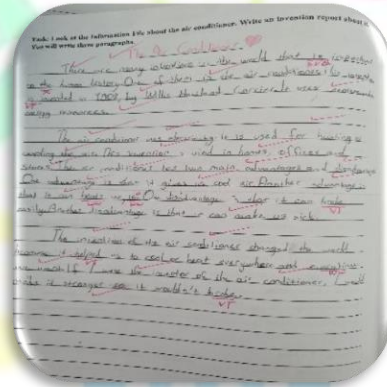 Task: Look at the information file about the air conditioner. Write an invention report about it.
You will write three paragraphs.
The Air Conditioner
There are many inventions in the world that invented
in the human history. One of them is the air conditioner.
is invented in 1902, by Willis
energy resources.
The air conditioner is used for heating or
cooling the air. This invention is used in homes, offices and
stores. The air conditioner has two main advantages and
One advantage is that it gives us cool air. Another advantage is
that it can heat us up. One disadvantage is that it can
easily. Another disadvantage is that it can make us sick.
The invention of the air conditioner changed the world
because it helped us to cool or heat everywhere and everything
we want. If I were the inventor of the air conditioner, I would
make it stronger so it wouldn't